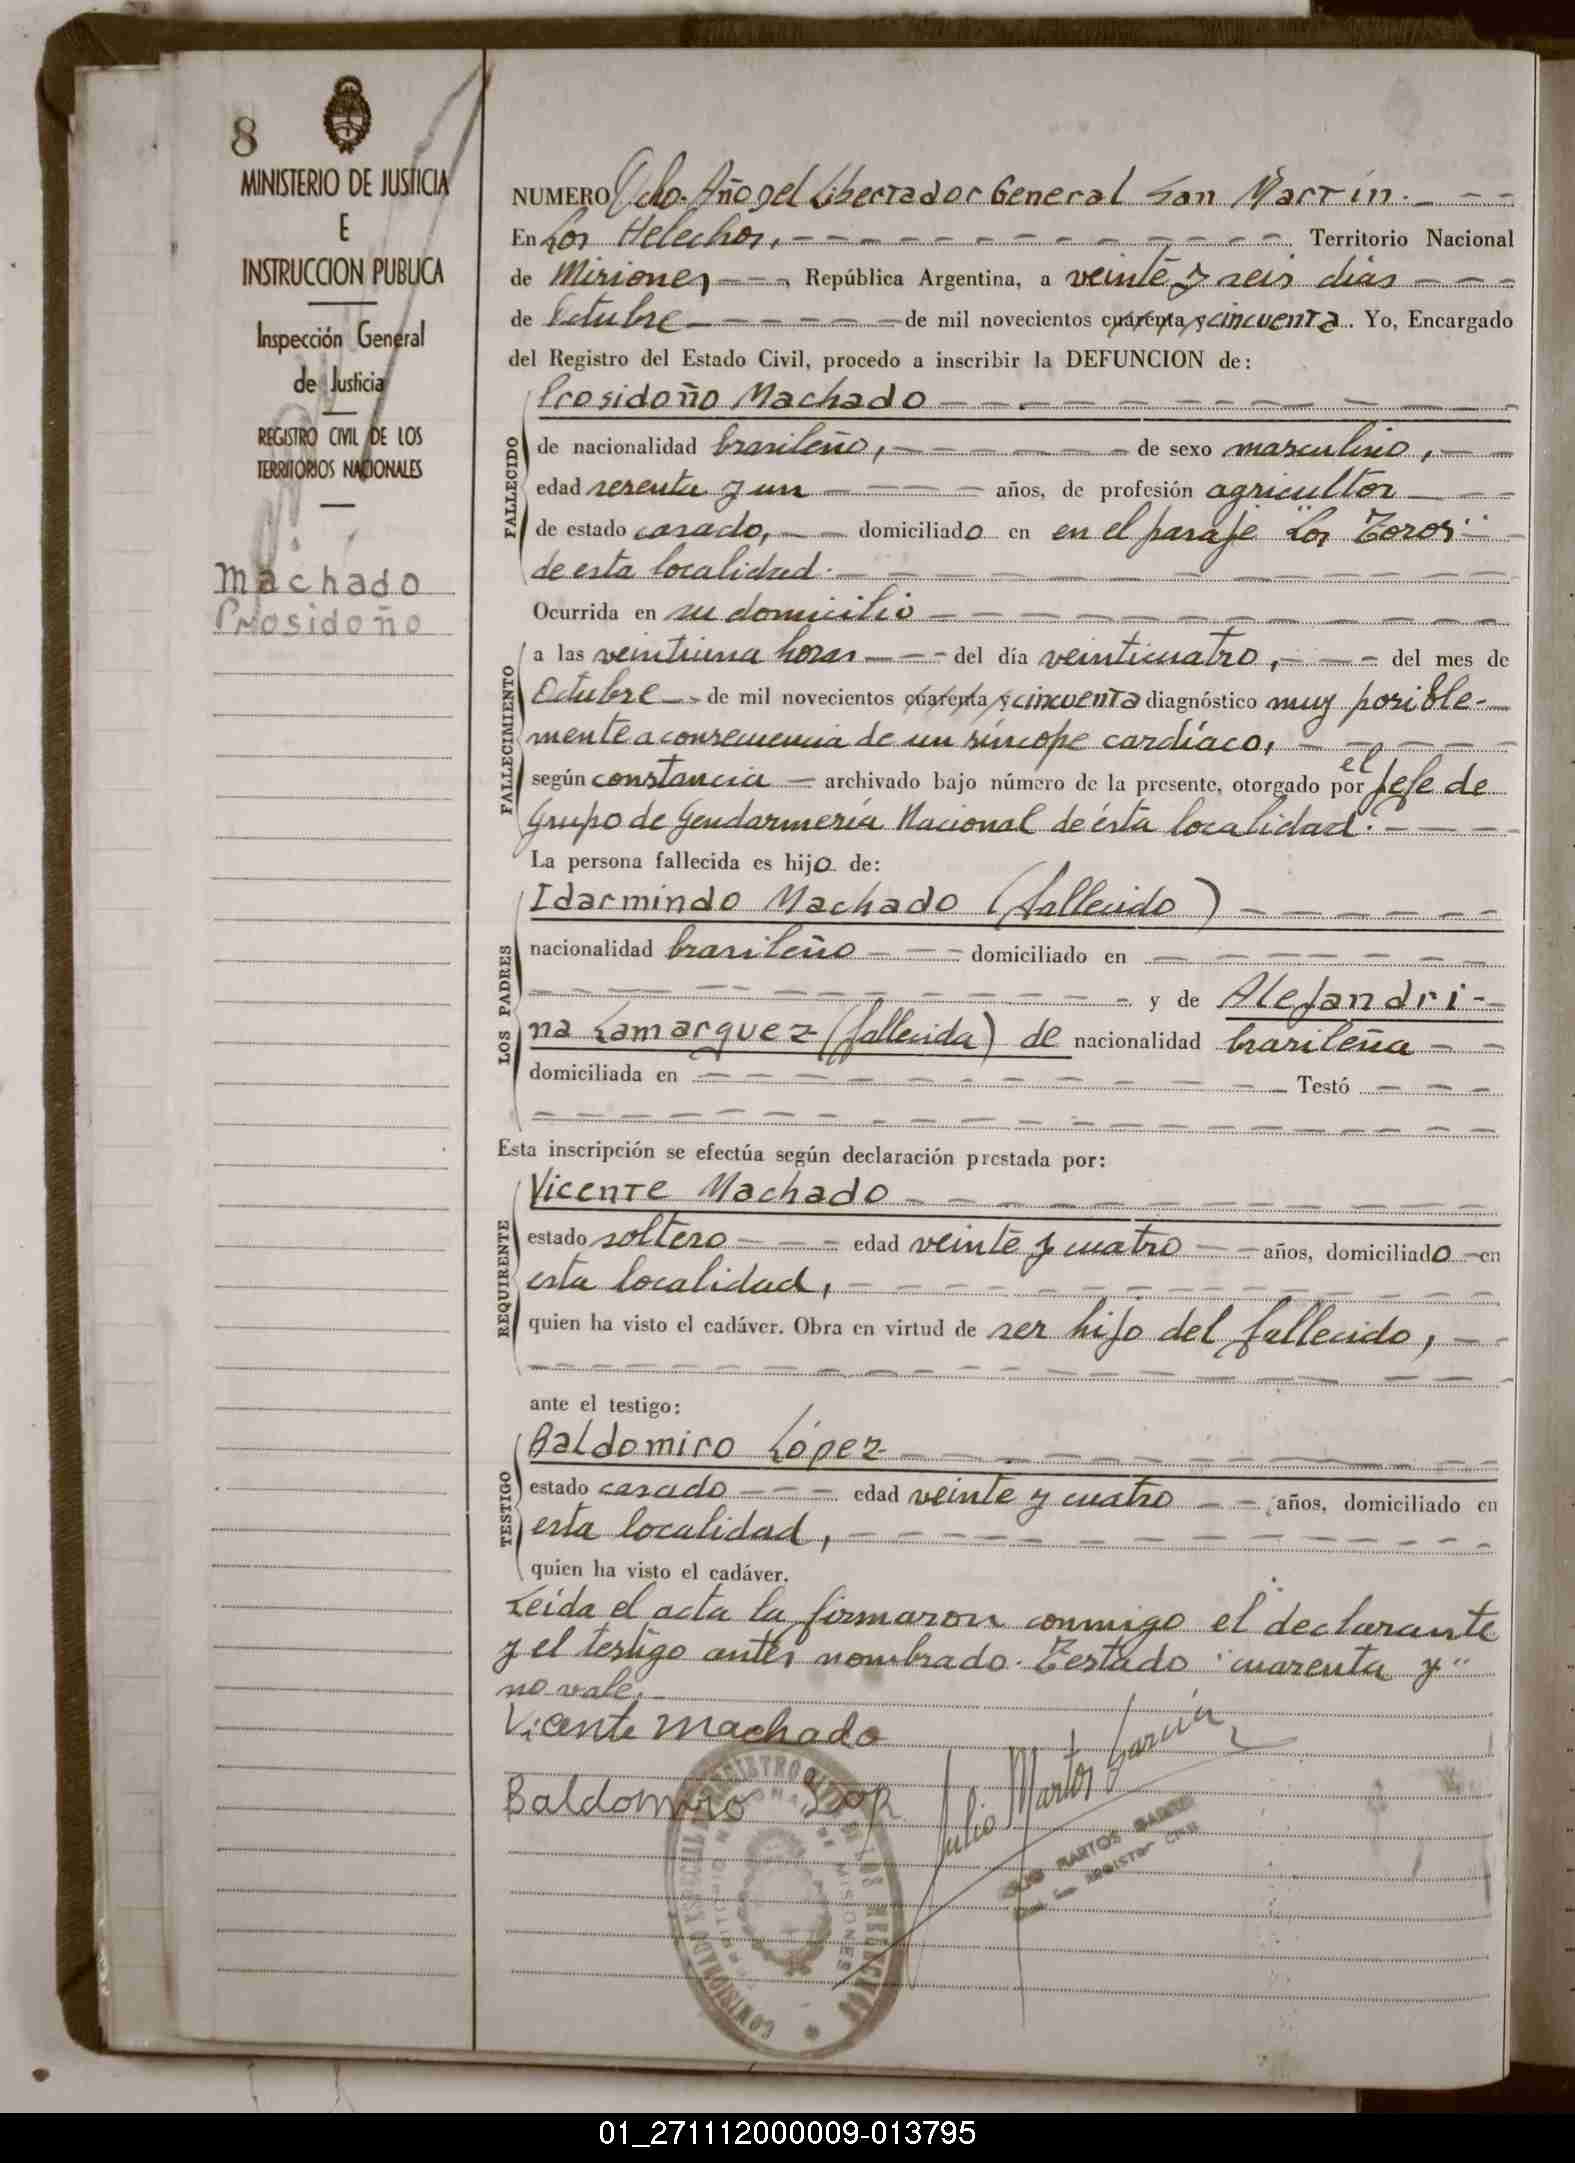 8
MINISTERIO DE JUSTICIA
E
INSTRUCCION PUBLICA
Inspección General
de Justicia
REGISTRO CIVIL DE LOS
TERRITORIOS NACIONALES
Machado
Prosidoño
NUMERO Ocho. Año del Libertador General San Martín.
En Los Helechos, Territorio Nacional
de Misiones, República Argentina, a veinte y seis días
de Octubre de mil novecientos cuarenta y cincuenta. Yo, Encargado
del Registro del Estado Civil, procedo a inscribir la DEFUNCION de:
FALLECIDO
Prosidoño Machado
de nacionalidad brasileño, de sexo masculino,
edad sesenta y un años, de profesión agricultor
de estado casado, domiciliado en en el paraje "Los Toros"
de esta localidad.
Ocurrida en su domicilio
FALLECIMIENTO
a las veintiuna horas del día veinticuatro, del mes de
Octubre de mil novecientos cuarenta y cincuenta diagnóstico muy posible-
mente a consecuencia de un síncope cardíaco,
según constancia archivado bajo número de la presente, otorgado por el Jefe de
Grupo de Gendarmería Nacional de ésta localidad.
La persona fallecida es hijo de:
LOS PADRES
Idarmindo Machado (fallecido)
nacionalidad brasileño domiciliado en
y de Alejandri-
na Lamarquez (fallecida) de nacionalidad brasileña
domiciliada en Testó
Esta inscripción se efectúa según declaración prestada por:
REQUIRENTE
Vicente Machado
estado soltero edad veinte y cuatro años, domiciliado en
esta localidad,
quien ha visto el cadáver. Obra en virtud de ser hijo del fallecido,
ante el testigo:
TESTIGO
Baldomiro López
estado casado edad veinte y cuatro años, domiciliado en
esta localidad,
quien ha visto el cadáver.
Leída el acta la firmaron conmigo el declarante
y el testigo antes nombrado. Testado "cuarenta y"
no vale.
Vicente Machado
Baldomiro
Julio Martos García
MARTOS
01_271112000009-013795